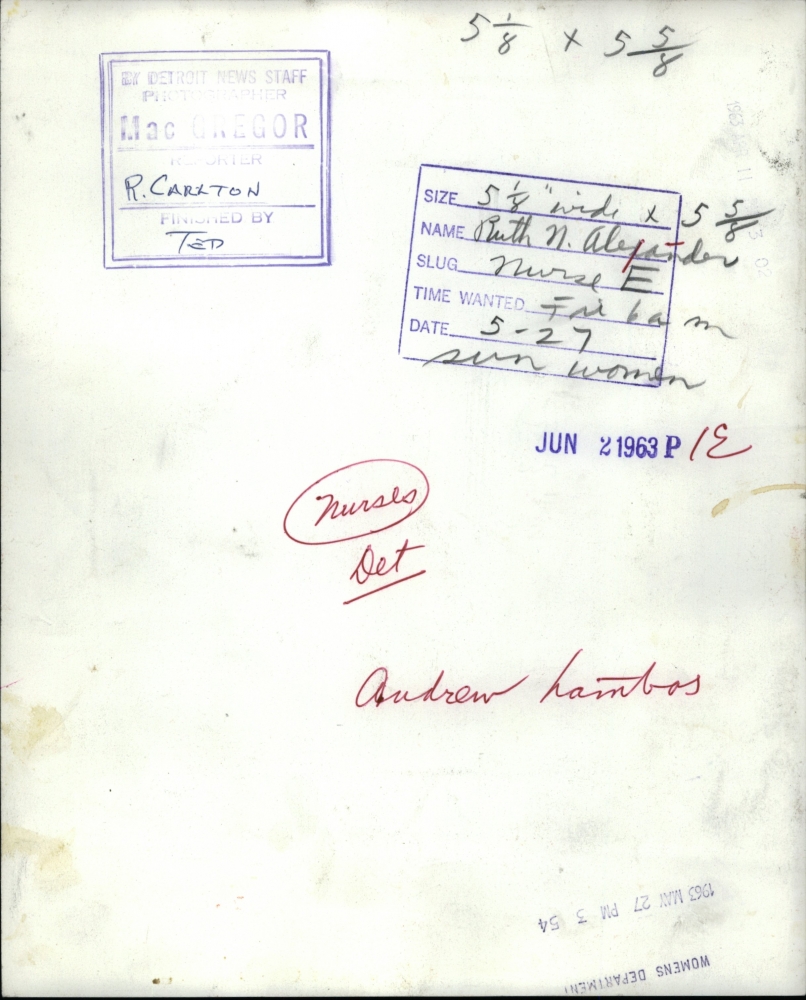 5 1/8 x 5 5/8
BY DETROIT NEWS STAFF
PHOTOGRAPHER
Mac GREGOR
REPORTER
R. CARLTON
FINISHED BY
TED
SIZE 5 1/8" wide x 5 5/8
NAME Ruth N. Alexander
SLUG Nurse E
TIME WANTED Fri 6 a m
DATE 5-27
sun women
JUN 2 1963 P 1E
Nurses
Det
Andrew Lambos
1963 MAY 27 PM 3 54
WOMENS DEPARTMENT